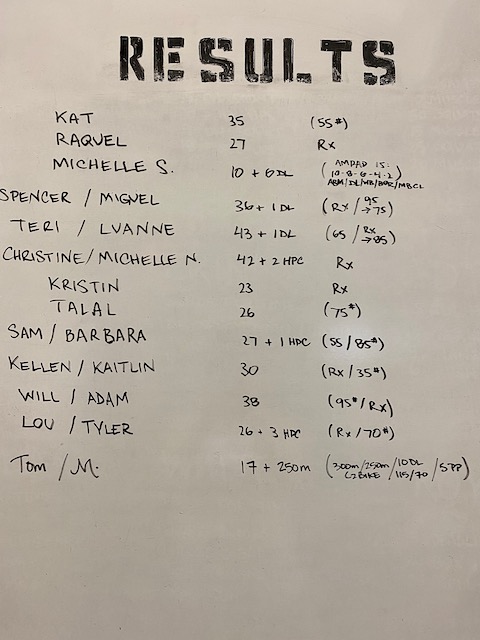 RESULTS
KAT 35 (55#)
RAQUEL 27 Rx
MICHELLE S. 10 + 6 DL (AMPAP 15:
10-8-6-4-2
ABM/DL/WB/BBJ/MBCL)
SPENCER / MIGUEL 36 + 1 DL (Rx / 95 → 75)
TERI / LUANNE 43 + 1 DL (65 / Rx → 85)
CHRISTINE / MICHELLE N. 42 + 2 HPC Rx
KRISTIN 23 Rx
TALAL 26 (75#)
SAM / BARBARA 27 + 1 HPC (55 / 85#)
KELLEN / KAITLIN 30 (Rx / 35#)
WILL / ADAM 38 (95# / Rx)
LOU / TYLER 26 + 3 HPC (Rx / 70#)
TOM / M. 17 + 250m (300m/250m / 10DL / 5PP)
C2BIKE 115/70